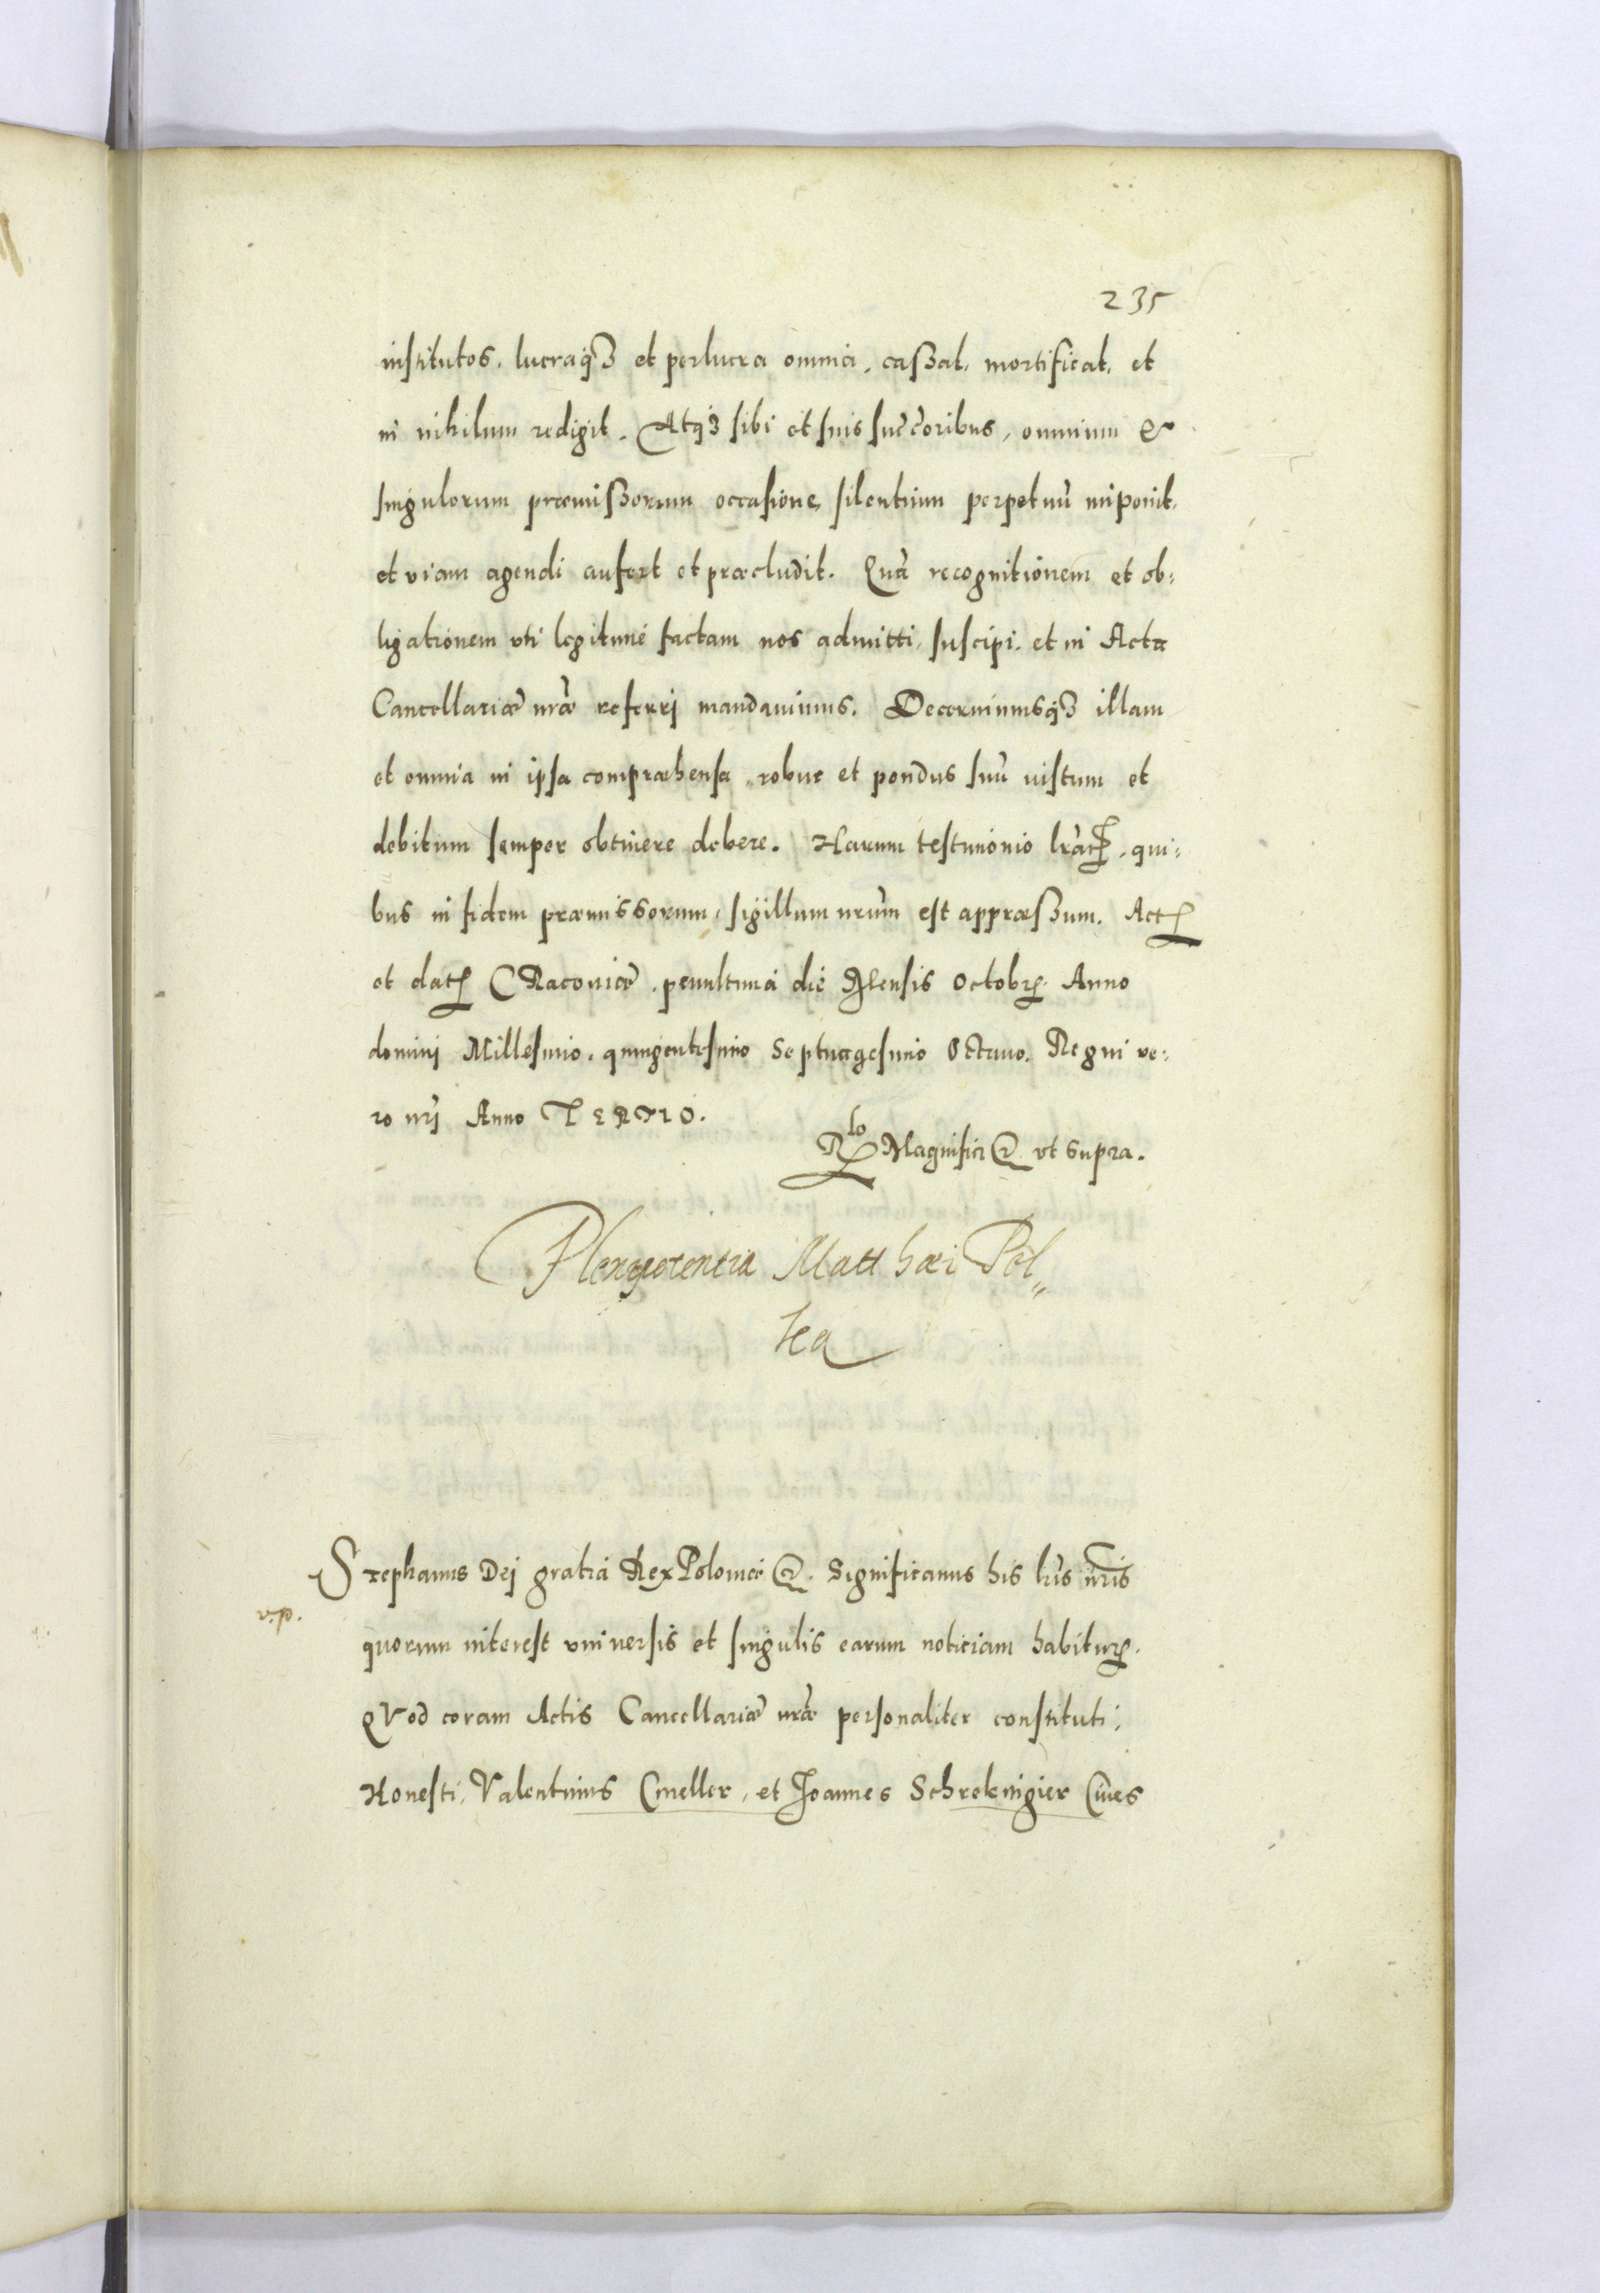 235
institutos, lucraq3 et perlucra omnia, cassat, mortificat, et
in nihilum redigit. Atq3 sibi et suis succoribus, omnium &
singulorum præmissorum occasione silentium perpetuũ imponit,
et viam agendi aufert et præcludit. Quã recognitionem et ob:
ligationem uti legitimè factam nos admitti, suscipi, et in Acta
Cancellariæ nræ referri mandavimus. Decernimusq3 illam
et omnia in ipsa compræhensa, robur et pondus suũ iustum et
debitum semper obtinere debere. Harum testimonio lrar, qui:
bus in fidem præmissorum, sigillum nrum est appræssum. Act
et dat Cracoviæ, penultima die Mensis Octobr Anno
domini Millesimo, quingentesimo Septuagesimo Octavo. Regni ve:
ro nri Anno TERTIO.
Rlo Magnifici & ut supra.
Plenipotentia Matthæi Pel„
ka
Stephanus Dej gratia Rex Poloniæ &. Significamus his lris nris
v.p.
quorum interest universis et singulis earum noticiam habitur.
QVod coram Actis Cancellariæ nræ personaliter constituti,
Honesti, Valentinus Cmeller, et Joannes Schrekingier Cives